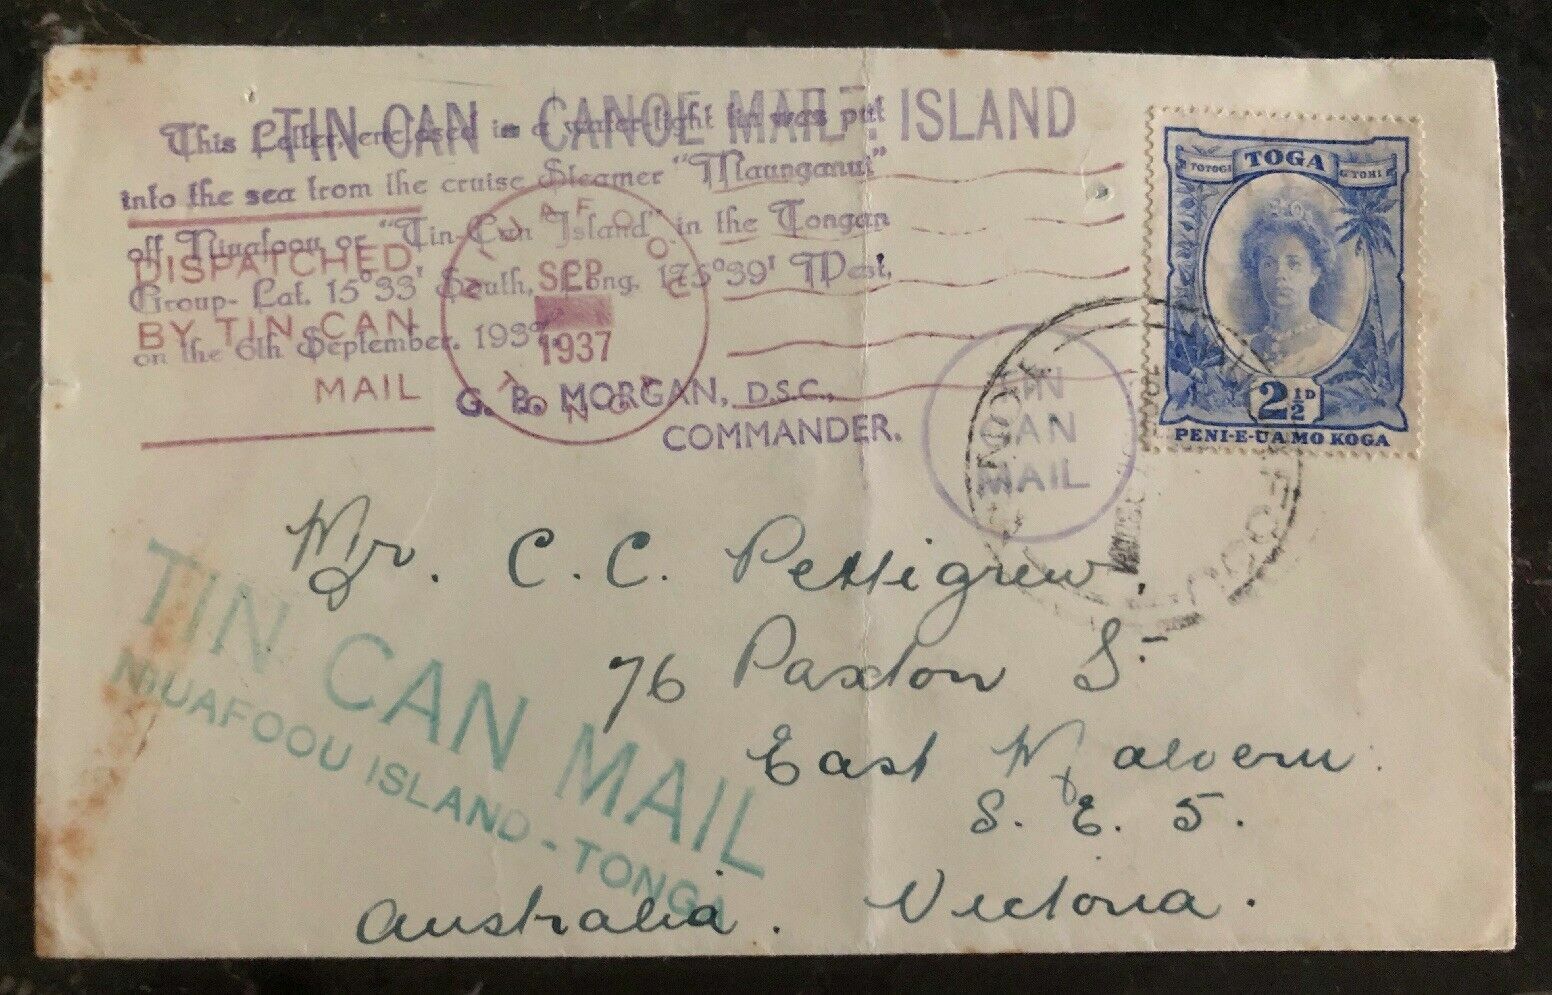 TIN CAN - CANOE MAIL. ISLAND
This Letter, enclosed in a watertight tin was put
into the sea from the cruise Steamer "Maunganui"
off Niuafoou or "Tin-Can Island" in the Tongan
Group- Lat. 15°33' South, Long. 175°39' West,
on the 6th September. 1937.
G. B. MORGAN, D.S.C.,
COMMANDER.
DISPATCHED
BY TIN CAN
MAIL
NIUAFOOU
SEP
1937
TONGA
TIN
CAN
MAIL
TOGA
TOTOGI
2½D
PENI-E-UA MO KOGA
Mr. C. C. Pettigrew,
76 Paxton St
East Malvern.
S. E. 5.
Victoria.
Australia.
TIN CAN MAIL
NIUAFOOU ISLAND - TONGA